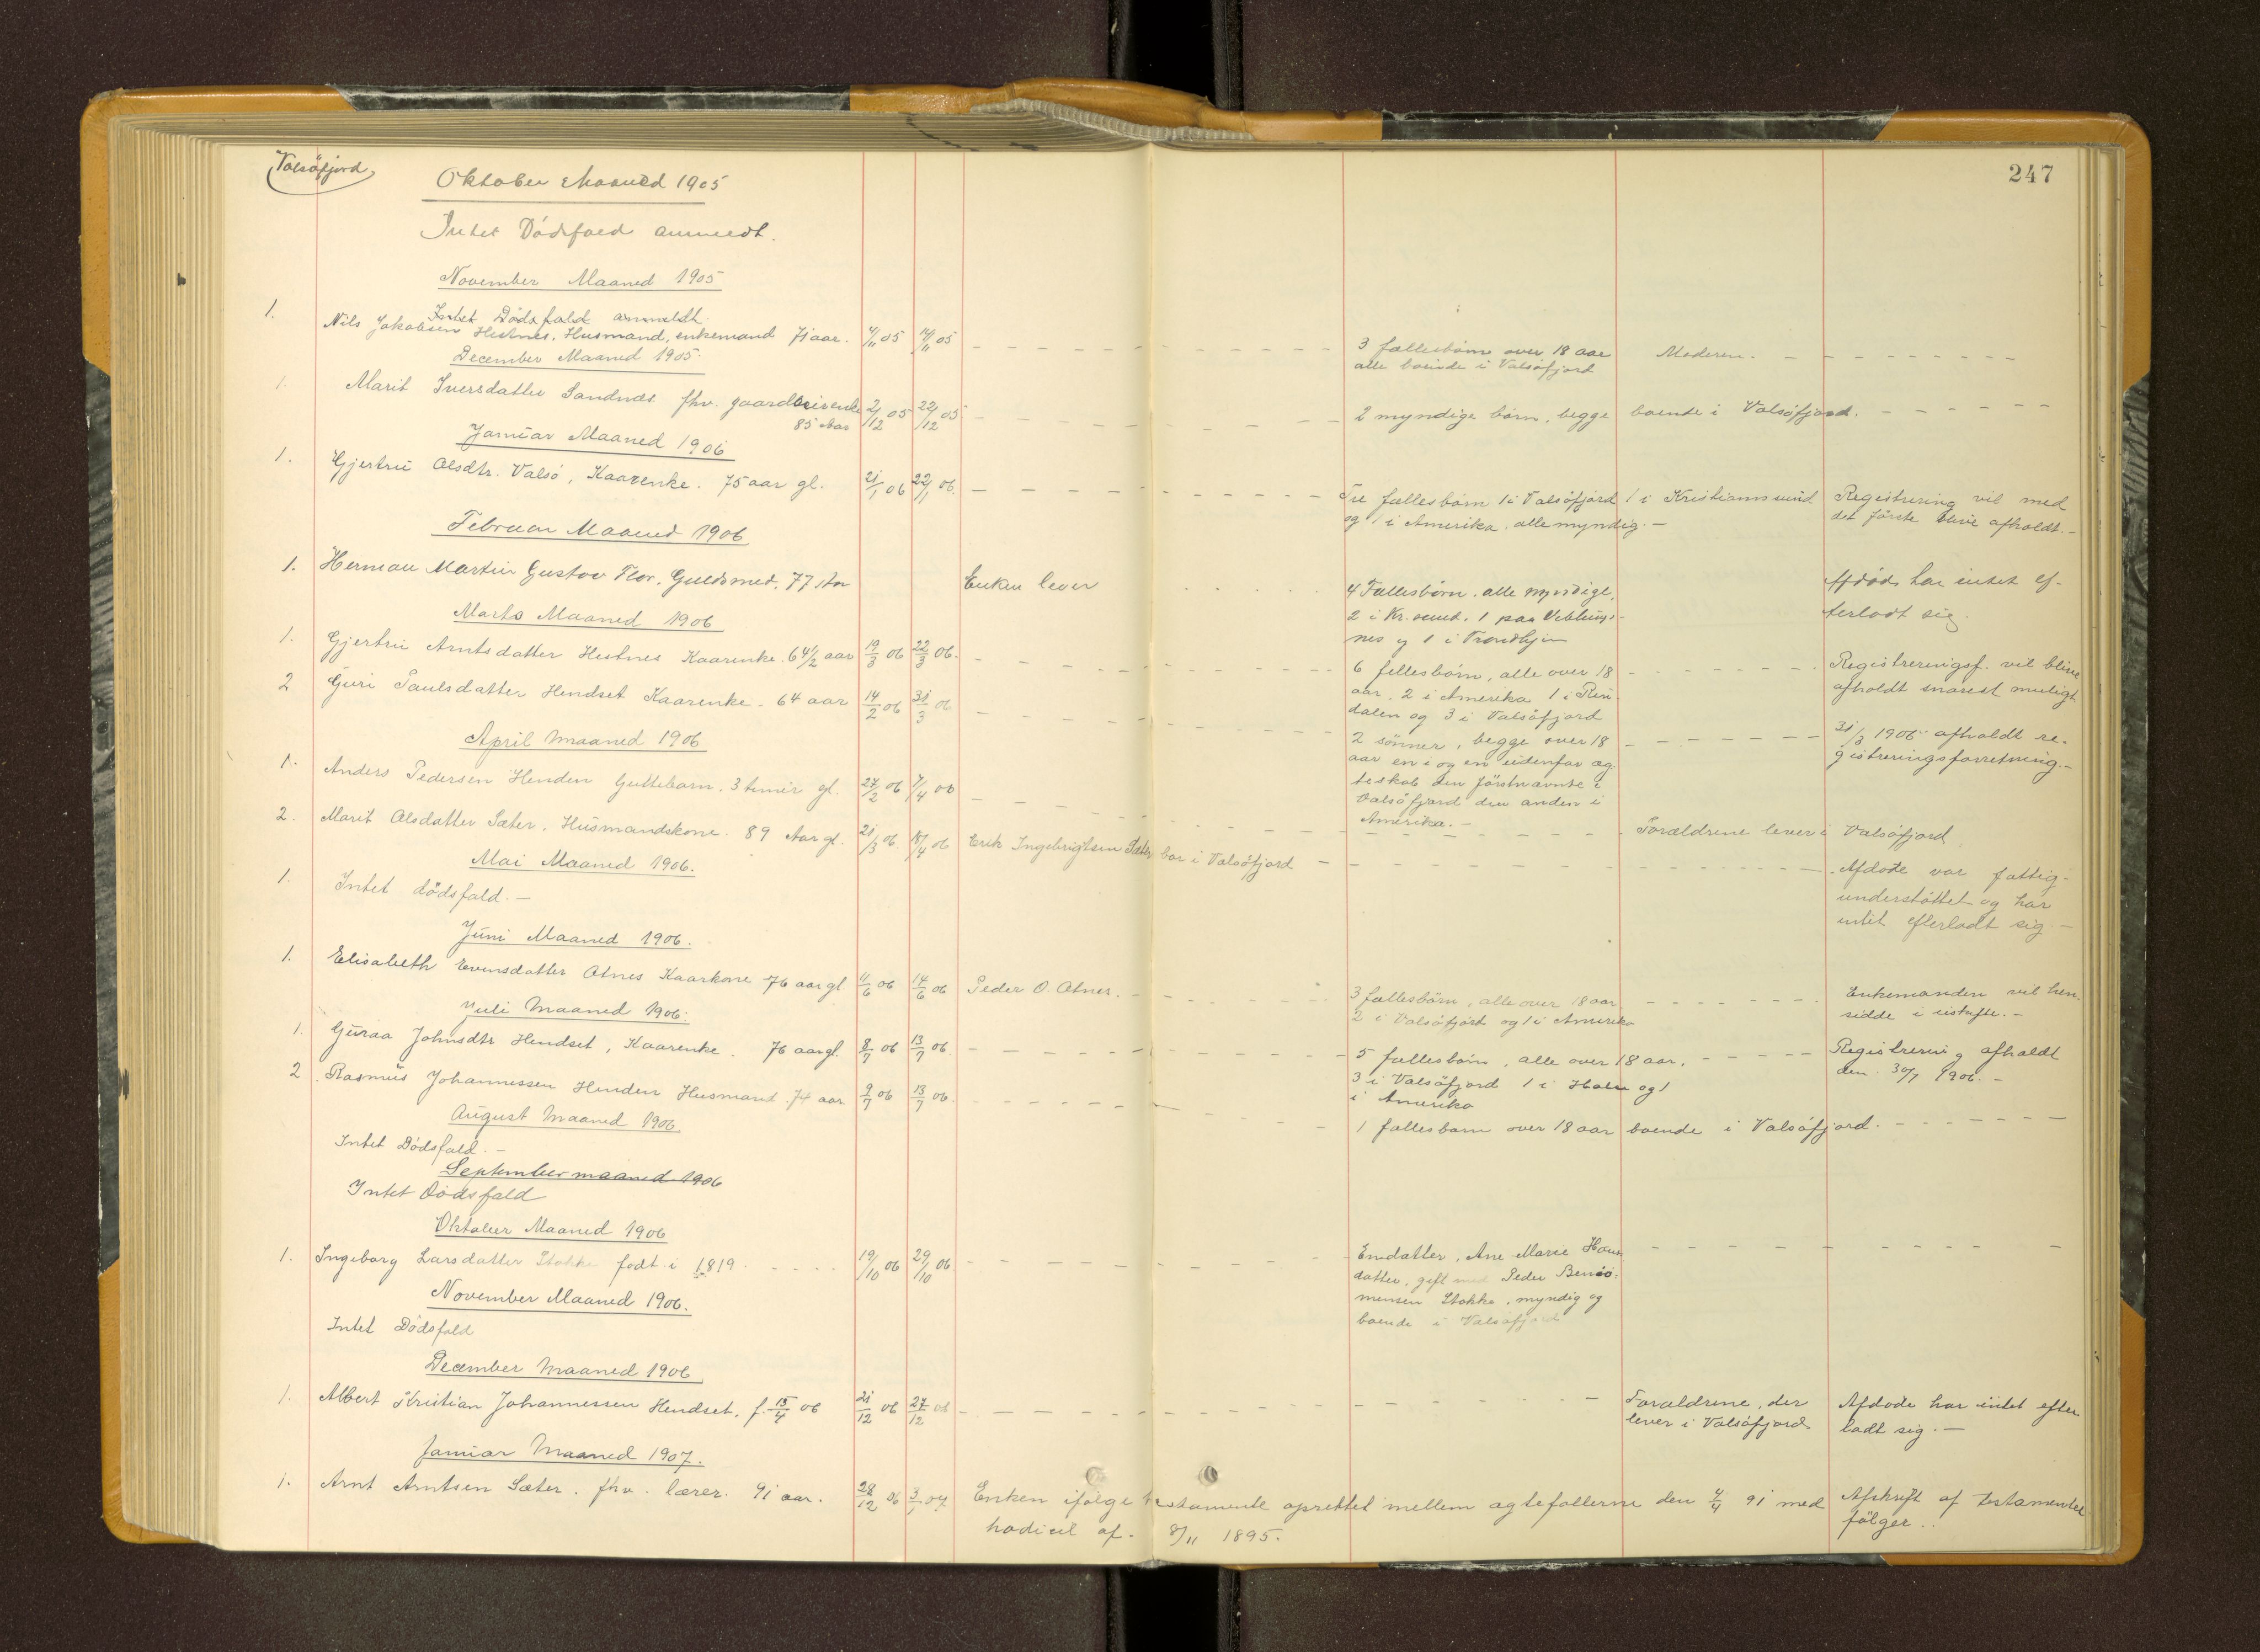 Valsöfjord
247
Oktober Maaned 1905
Intet Dödsfald anmeldt.
November Maaned 1905
Intet Dödsfald anmeldt.
1. Nils Jakobsen Hestnes, Husmand, enkemand 71 aar. 4/11 05 14/11 05 3 fællesbörn over 18 aar Moderen.
alle boende i Valsöfjord
December Maaned 1905.
1. Marit Iversdatter Sandnes fhv. gaardbrugerenke 2/12 05 22/12 05 2 myndige börn, begge boende i Valsöfjord.
85 Aar
Januar Maaned 1906
1. Gjertru Olsdtr. Valsö, Kaarenke. 75 aar gl. 21/1 06 22/1 06. Tre fællesbörn 1 i Valsöfjord 1 i Kristianssund Registrering vil med
og 1 i Amerika, alle myndig. det förste blive afholdt.
Februar Maaned 1906
1. Herman Martin Gustav Flor, Guldsmed, 77 Aar Enken lever 4 Fællesbörn, alle myndige, Afdöde har intet ef-
2 i Kr.sund, 1 paa Veblungs- terladt sig.
nes og 1 i Trondhjem
Marts Maaned 1906
1. Gjertru Arntsdatter Hestnes Kaarenke. 64 1/2 aar 19/3 06 22/3 06. 6 fellesbörn, alle over 18 Registreringsf. vil blive
aar, 2 i Amerika 1 i Rin- afholdt snarest muligt
dalen og 3 i Valsöfjord
2 Guri Paulsdatter Hendset Kaarenke. 64 aar 14/2 06 31/3 06 2 sönner, begge over 18 31/3 1906 afholdt re-
aar en i og en udenfor æg- gistreringsforretning.
teskab den förstnævnte i
Valsöfjord den anden i
Amerika.
April Maaned 1906
1. Anders Pedersen Henden Guttebarn. 3 timer gl. 27/2 06 7/4 06 Forældrene lever i Valsöfjord
2. Marit Olsdatter Sæter, Husmandskone. 89 Aar gl. 21/3 06. 18/4 06 Erik Ingebrigtsen Sæter bor i Valsöfjord Afdöde var fattig-
understöttet og har
intet efterladt sig
Mai Maaned 1906.
1. Intet dödsfald.
Juni Maaned 1906.
1. Elisabeth Evensdatter Otnes Kaarkone 76 aar gl 11/6 06 14/6 06 Peder O. Otnes. 3 fællesbörn, alle over 18 aar Enkemanden vil hen-
2 i Valsöfjord og 1 i Amerika sidde i uskifte.
Juli Maaned 1906.
1. Guraa Johnsdtr Hendset, Kaarenke. 76 aar gl. 8/7 06 13/7 06. 5 fællesbörn, alle over 18 aar. Registrering afholdt
3 i Valsöfjord 1 i Halse og 1 den 30/7 1906.
i Amerika
2. Rasmus Johannessen Henden Husmand. 74 aar 9/7 06 13/7 06. 1 fællesbarn over 18 aar boende i Valsöfjord.
August Maaned 1906
Intet Dödsfald.
September maaned 1906
Intet Dödsfald
Oktober Maaned 1906
1. Ingeborg Larsdatter Stokke födt i 1819. 19/10 06 29/10 06. En datter, Ane Marie Hans-
datter, gift med Peder
Stokke, myndig og
boende i Valsöfjord
November Maaned 1906.
Intet Dödsfald
December Maaned 1906
1. Albert Kristian Johannessen Hendset, f. 13/4 06 21/12 06 27/12 06 Forældrene, der Afdöde har intet efter
lever i Valsöfjord ladt sig.
Januar Maaned 1907.
1. Arnt Arntsen Sæter. fhv. lærer. 91 aar. 28/12 06 3/1 07 Enken ifölge testamente oprettet mellem ægtefællerne den 4/4 91 med Afskrift af testamentet
kodicil af 8/11 1895. fölger.